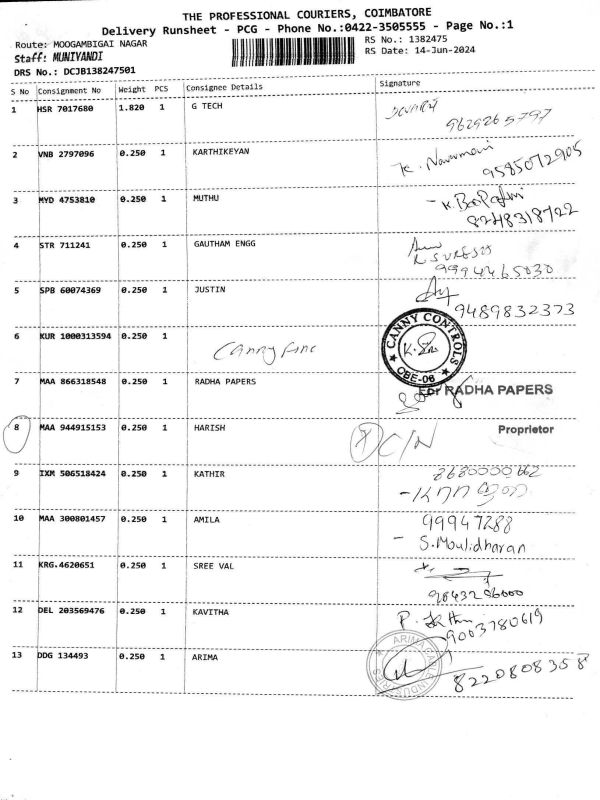 THE PROFESSIONAL COURIERS, COIMBATORE
Delivery Runsheet - PCG - Phone No.:0422-3505555 - Page No.:1
Route: MOOGAMBIGAI NAGAR
RS No.: 1382475
Staff: MUNIYANDI
RS Date: 14-Jun-2024
DRS No.: DCJB138247501
S No Consignment No Weight PCS Consignee Details Signature
1 HSR 7017680 1.820 1 G TECH
9629265797
2 VNB 2797096 0.250 1 KARTHIKEYAN
K.
9585072905
3 MYD 4753810 0.250 1 MUTHU
8248318722
4 STR 711241 0.250 1 GAUTHAM ENGG
R SURESH
9994465030
5 SPB 60074369 0.250 1 JUSTIN
9489832373
6 KUR 1000313594 0.250 1
Canny
CANNY CONTROLS
CBE-06
7 MAA 866318548 0.250 1 RADHA PAPERS
For RADHA PAPERS
8 MAA 944915153 0.250 1 HARISH
C/N
Proprietor
9 IXM 506518424 0.250 1 KATHIR
8680000662
10 MAA 300801457 0.250 1 AMILA
99947288
- S.Moulidharan
11 KRG.4620651 0.250 1 SREE VAL
9843206000
12 DEL 203569476 0.250 1 KAVITHA
P.
9003780619
13 DDG 134493 0.250 1 ARIMA
ARIMA
INDUSTRIES
8220808358